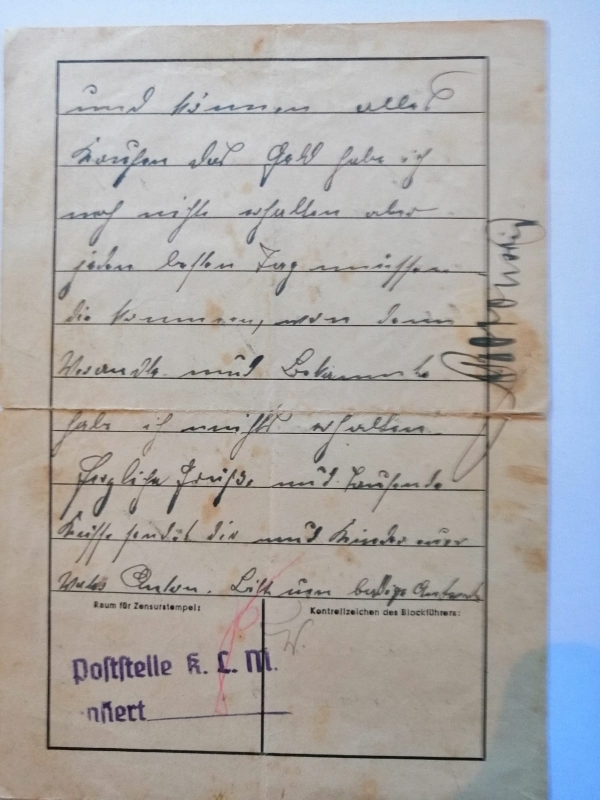 und können alles
Kaufen das Geld habe ich
noch nicht erhalten aber
jeden besten Tag müssen
die kommen, von denn
und Bekannte
habe ich nichts erhalten.
Herzliche Grüße und Tausende
Küsse sendet dir und Kinder euer
Vater Anton. Bitte um baldige Antwort
Raum für Zensurstempel:
Kontrollzeichen des Blockführers:
Poststelle K. L. M.
nsiert